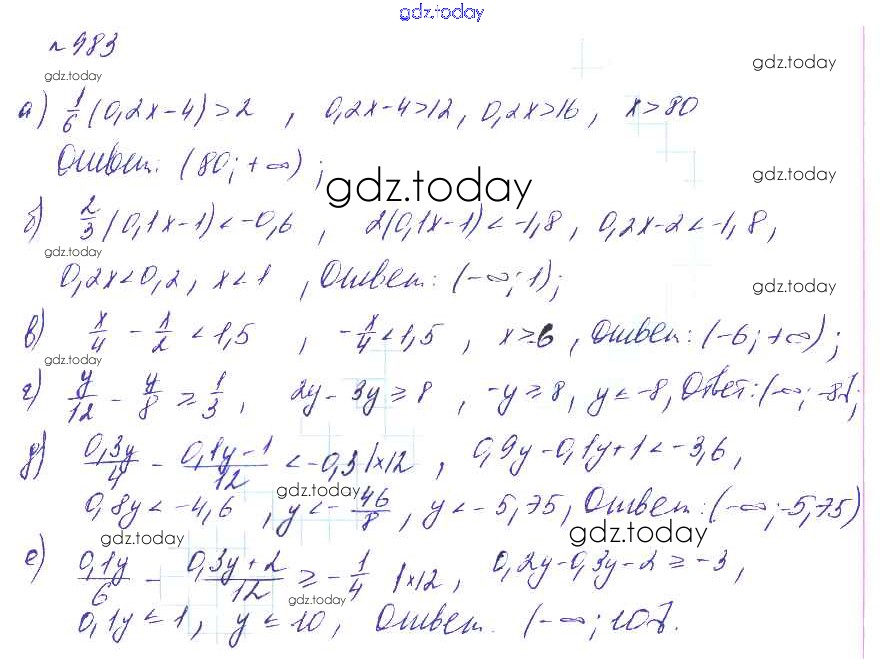 gdz.today
№983
gdz.today
gdz.today
а) 1/6 (0,2x-4)>2 , 0,2x-4>12, 0,2x>16, x>80
Ответ: (80;+∞);
gdz.today
gdz.today
б) 2/3 (0,1x-1)<-0,6 , 2(0,1x-1)<-1,8, 0,2x-2<-1,8,
gdz.today
0,2x<0,2, x<1 , Ответ: (-∞;1);
gdz.today
в) x/4 - x/2 <1,5 , -x/4<1,5 , x>-6, Ответ: (-6;+∞);
gdz.today
г) y/12 - y/8 ≥ 1/3, 2y-3y≥8 , -y≥8, y≤-8, Ответ: (-∞;-8];
д) 0,3y/4 - 0,1y-1/12 <-0,3 |×12, 0,9y-0,1y+1<-3,6,
gdz.today
0,8y<-4,6 , y<-46/8, y<-5,75, Ответ: (-∞;-5,75)
gdz.today
gdz.today
е) 0,1y/6 - 0,3y+2/12 ≥ -1/4 |×12, 0,2y-0,3y-2≥-3,
gdz.today
0,1y≤1, y≤10, Ответ. (-∞;10].